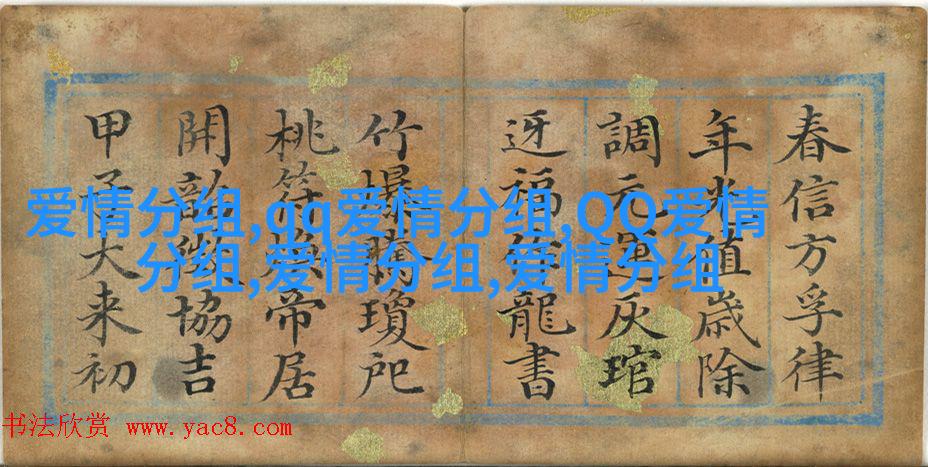 春信方孚律
年光值歲除
調元運灰琯
迓福龍書
竹爆騰瓊
桃符換帝居
開韶協吉
甲子大来初
爱情分组,qq爱情分组,QQ爱情
分组,爱情分组,爱情分组
书法欣赏 www.yac8.com